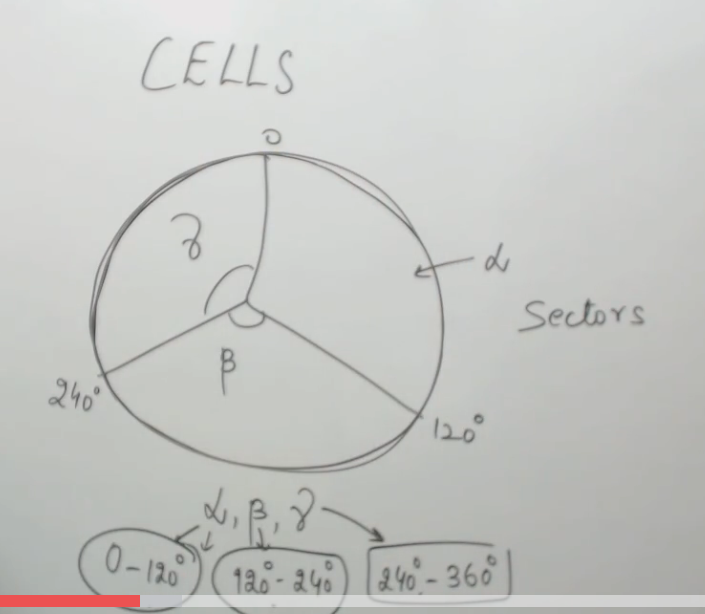 CELLS
0
γ
α
Sectors
β
240°
120°
α, β, γ
0-120° 120°-240° 240°-360°